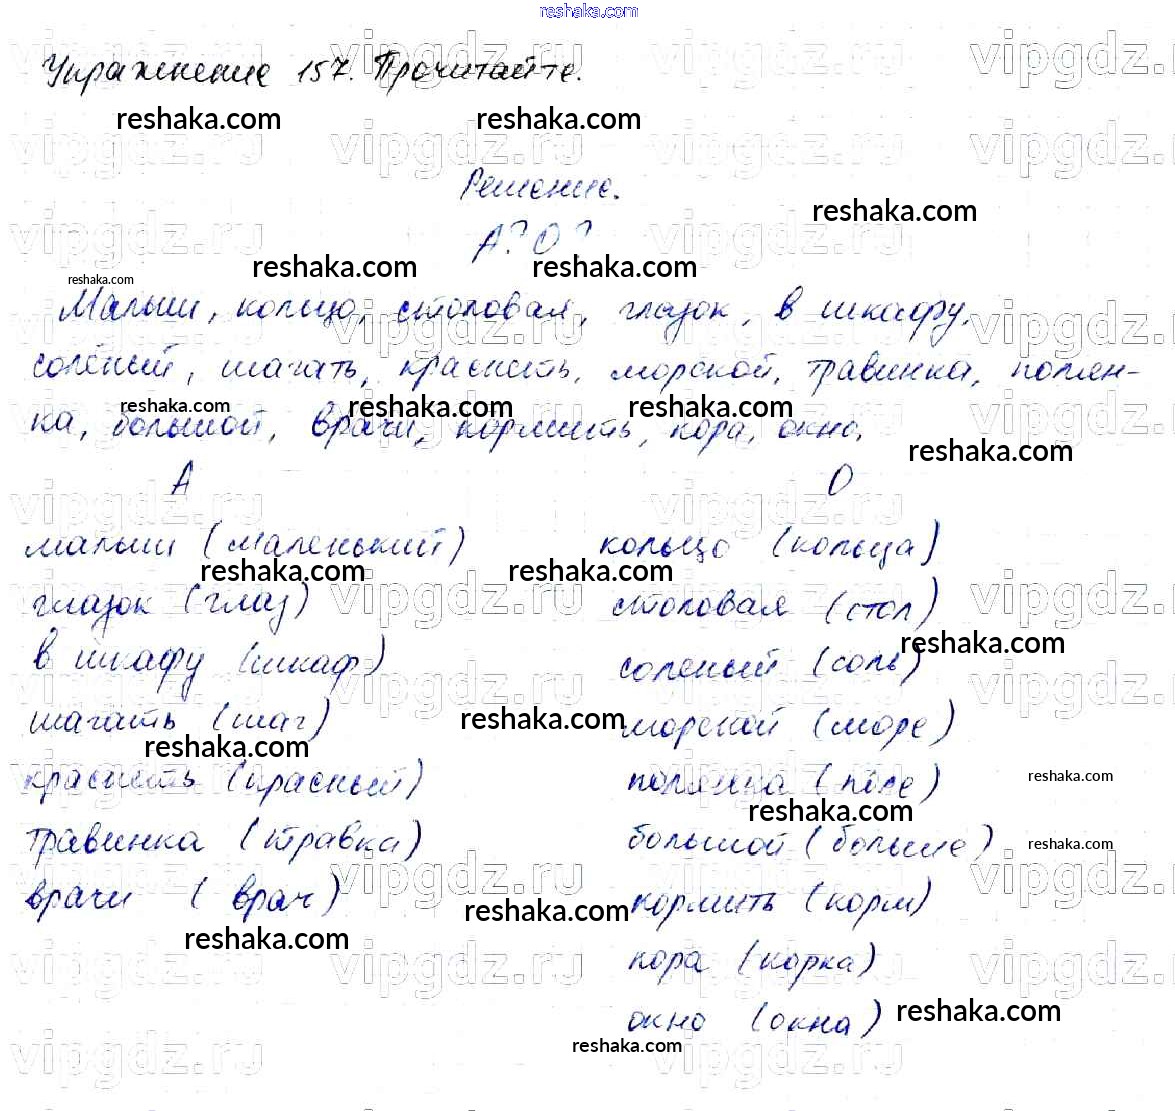 reshaka.com
Упражнение 157. Прочитайте.
reshaka.com reshaka.com
Решение.
reshaka.com
А? О?
reshaka.com reshaka.com
reshaka.com
Малыши, кольцо, столовая, глазок, в шкафу,
солёный, шагать, краснеть, морской, травинка, полян-
reshaka.com reshaka.com reshaka.com
ка, большой, врачи, кормить, кора, окно.
reshaka.com
А О
малыши (маленький) кольцо (кольца)
reshaka.com reshaka.com
глазок (глаз) столовая (стол)
reshaka.com
в шкафу (шкаф) соленый (соль)
шагать (шаг) reshaka.com морской (море)
reshaka.com
краснеть (красный) полянка (поле) reshaka.com
reshaka.com
травинка (травка) большой (больше) reshaka.com
врачи (врач) кормить (корм)
reshaka.com reshaka.com
кора (корка)
окно (окна) reshaka.com
reshaka.com
vipgdz.ru